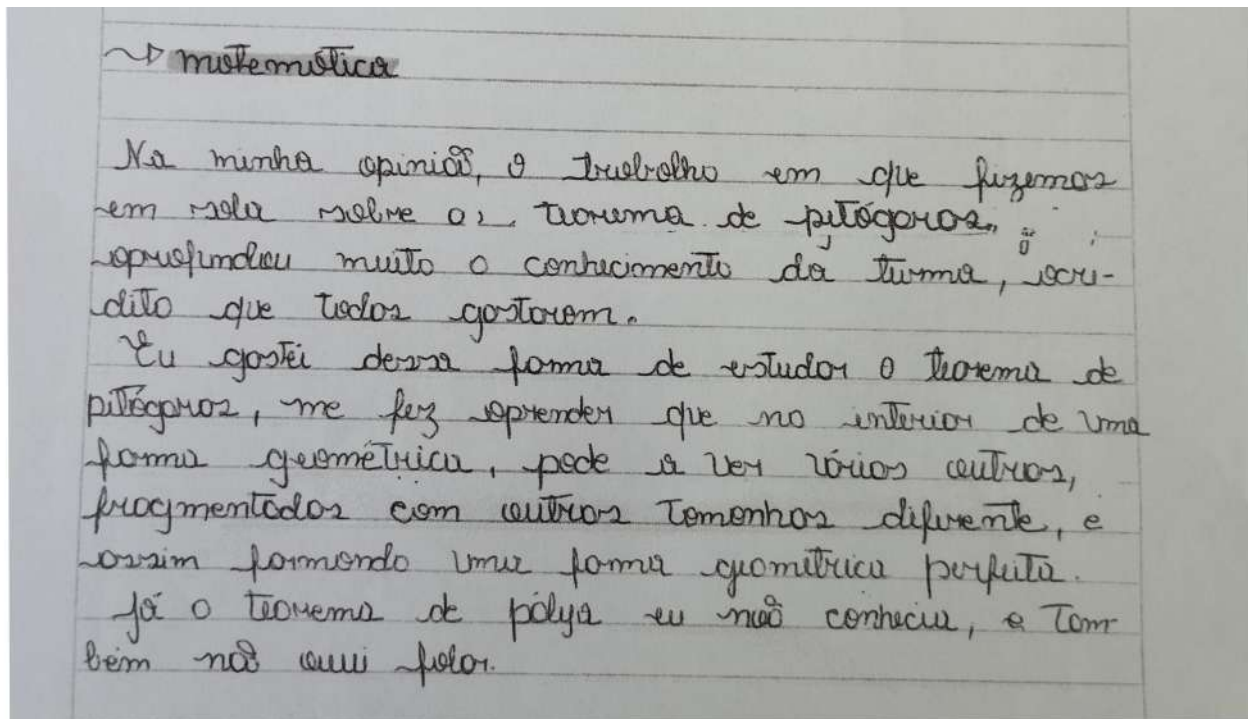 ~> matemática
Na minha opinião, o trabalho em que fizemos
em sala sobre os teorema de pitágoras,
aprofundou muito o conhecimento da turma, acre-
dito que todos gostaram.
Eu gostei dessa forma de estudar o teorema de
pitágoras, me fez aprender que no interior de uma
forma geométrica, pode a ver vários outros,
fragmentados com outros tamanhos diferente, e
assim formando uma forma geométrica perfeita.
Já o teorema de pólya eu não conhecia, e tam
bém não ouvi falar.